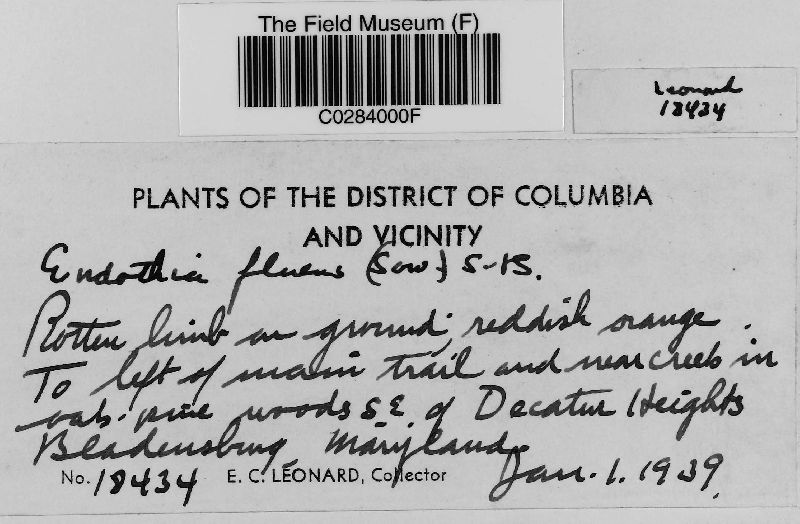 The Field Museum (F)
C0284000F
Leonard
18434
PLANTS OF THE DISTRICT OF COLUMBIA
AND VICINITY
Endothia fluens (Sow.) S-&S.
Rotten limb on ground; reddish orange.
To left of main trail and near creek in
oak-pine woods SE. of Decatur Heights
Bladensburg, Maryland.
No. 18434 E. C. LEONARD, Collector Jan. 1. 1939.